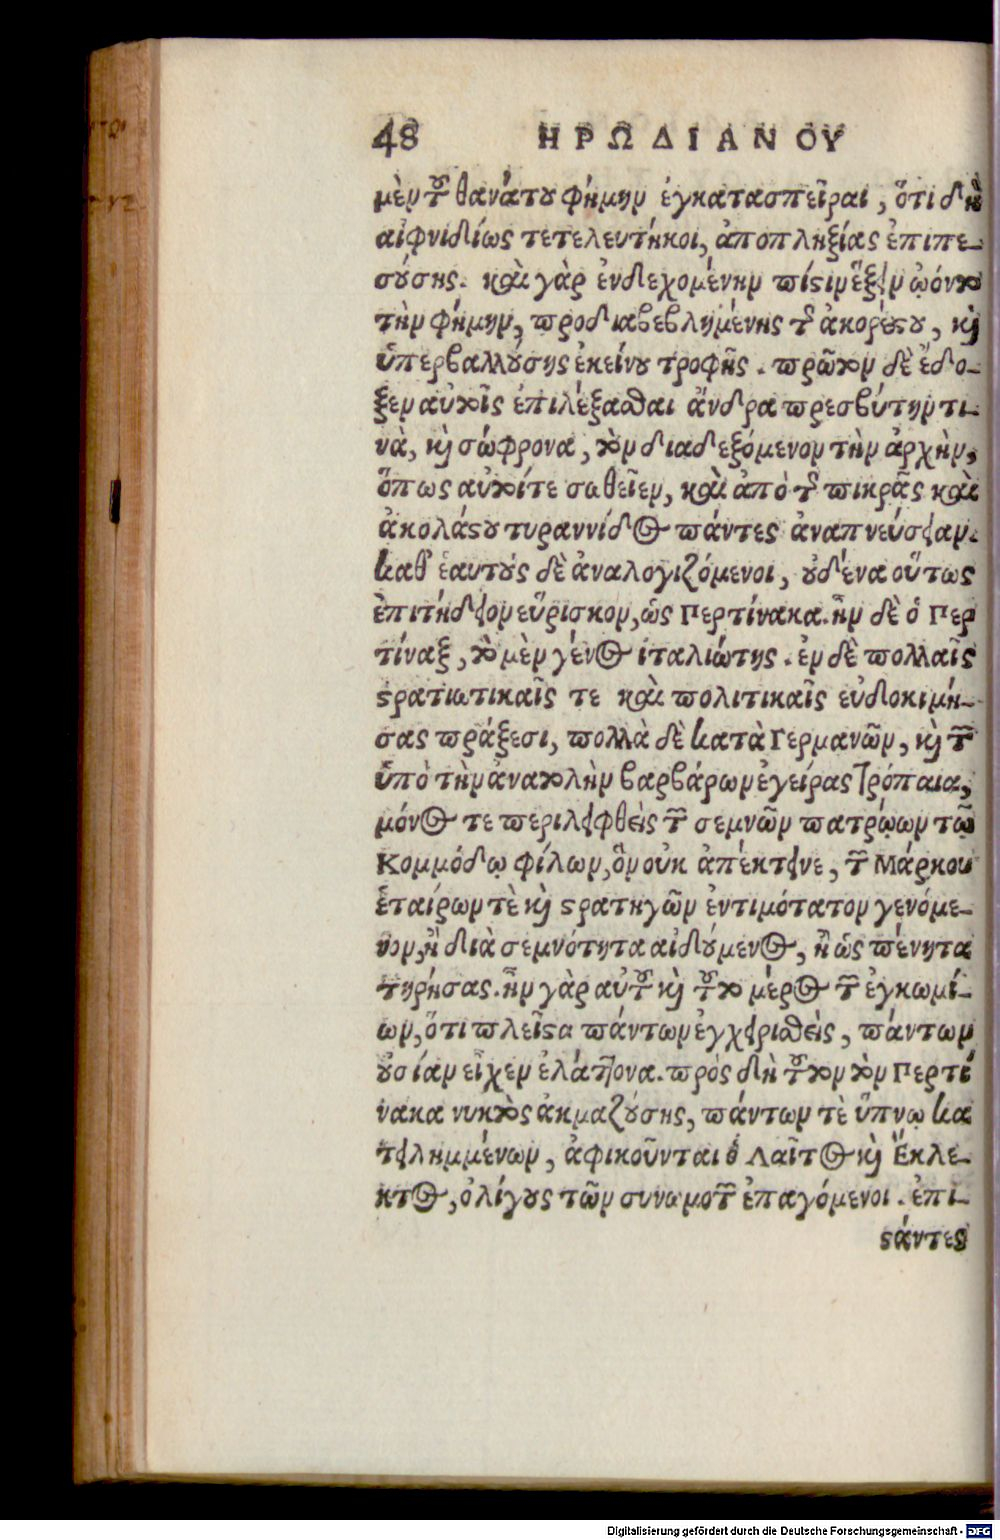 48 ΗΡΩΔΙΑΝΟΥ
μὲν τοῦ θανάτου φήμην ἐγκατασπεῖραι, ὅτι δὴ
αἰφνιδίως τετελευτήκοι, ἀποπληξίας ἐπιπε-
σούσης. καὶ γὰρ ἐνδεχομένην πίστιν ἕξειν ᾤοντο
τὴν φήμην, προδιαβεβλημένης τῆς ἀκορέστου, καὶ
ὑπερβαλλούσης ἐκείνου τροφῆς. πρῶτον δὲ ἔδο-
ξεν αὐτοῖς ἐπιλέξασθαι ἄνδρα πρεσβύτην τι-
νὰ, καὶ σώφρονα, τὸν διαδεξόμενον τὴν ἀρχὴν,
ὅπως αὐτοί τε σωθεῖεν, καὶ ἀπὸ τῆς πικρᾶς καὶ
ἀκολάστου τυραννίδος πάντες ἀναπνεύσειαν.
καθ' ἑαυτοὺς δὲ ἀναλογιζόμενοι, οὐδένα οὕτως
ἐπιτήδειον εὕρισκον, ὡς Περτίνακα. ἦν δὲ ὁ Περ
τίναξ, τὸ μὲν γένος ἰταλιώτης. ἐν δὲ πολλαῖς
στρατιωτικαῖς τε καὶ πολιτικαῖς εὐδοκιμή-
σας πράξεσι, πολλὰ δὲ κατὰ Γερμανῶν, καὶ τῶν
ὑπὸ τὴν ἀνατολὴν βαρβάρων ἐγείρας τρόπαια,
μόνος τε περιλειφθεὶς τῶν σεμνῶν πατρῴων τῷ
Κομμόδῳ φίλων, ὃν οὐκ ἀπέκτεινε, τῶν Μάρκου
ἑταίρων τὲ καὶ στρατηγῶν ἐντιμότατον γενόμε-
νον, ἢ διὰ σεμνότητα αἰδούμενος, ἢ ὡς πένητα
τηρήσας. ἦν γὰρ αὐτοῦ καὶ τοῦτο μέρος τῶν ἐγκωμί-
ων, ὅτι πλεῖστα πάντων ἐγχειρισθεὶς, πάντων
οὐσίαν εἶχεν ἐλάττονα. πρὸς δὴ τοῦτον τὸν Περτί
νακα νυκτὸς ἀκμαζούσης, πάντων τὲ ὕπνῳ κα
τειλημμένων, ἀφικοῦνται ὁ Λαῖτος καὶ Ἔκλε-
κτος, ὀλίγους τῶν συνωμοτῶν ἐπαγόμενοι. ἐπι-
στάντες
Digitalisierung gefördert durch die Deutsche Forschungsgemeinschaft - DFG